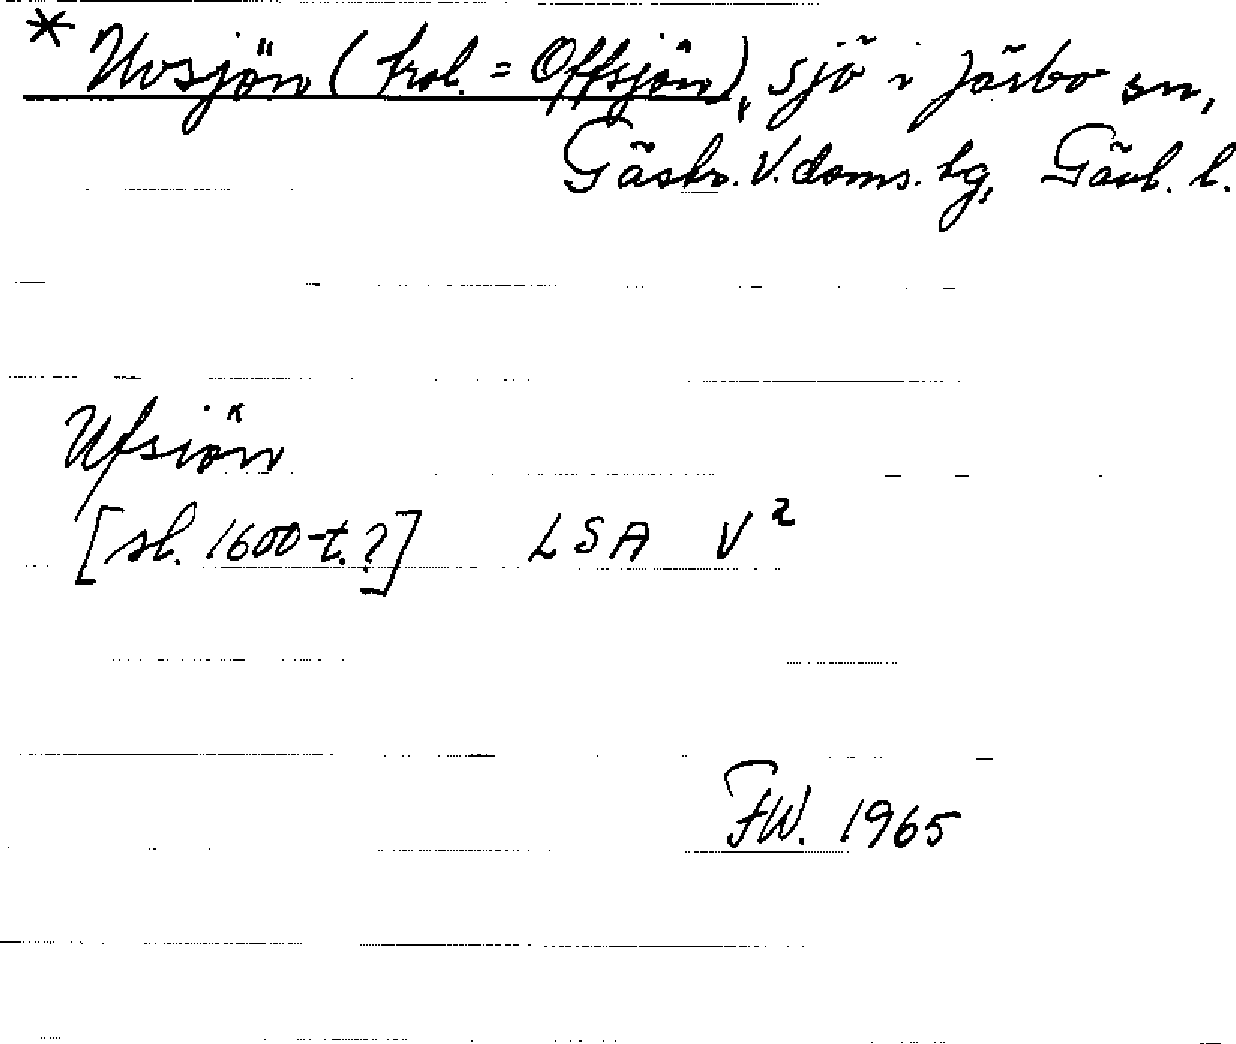 * Uvsjön (trol. = Offsjön), sjö i Järbo sn,
Gästr. V. doms. tg, Gävl. l.
Ufsiön
[sl. 1600-t.?] LSA V²
FW. 1965